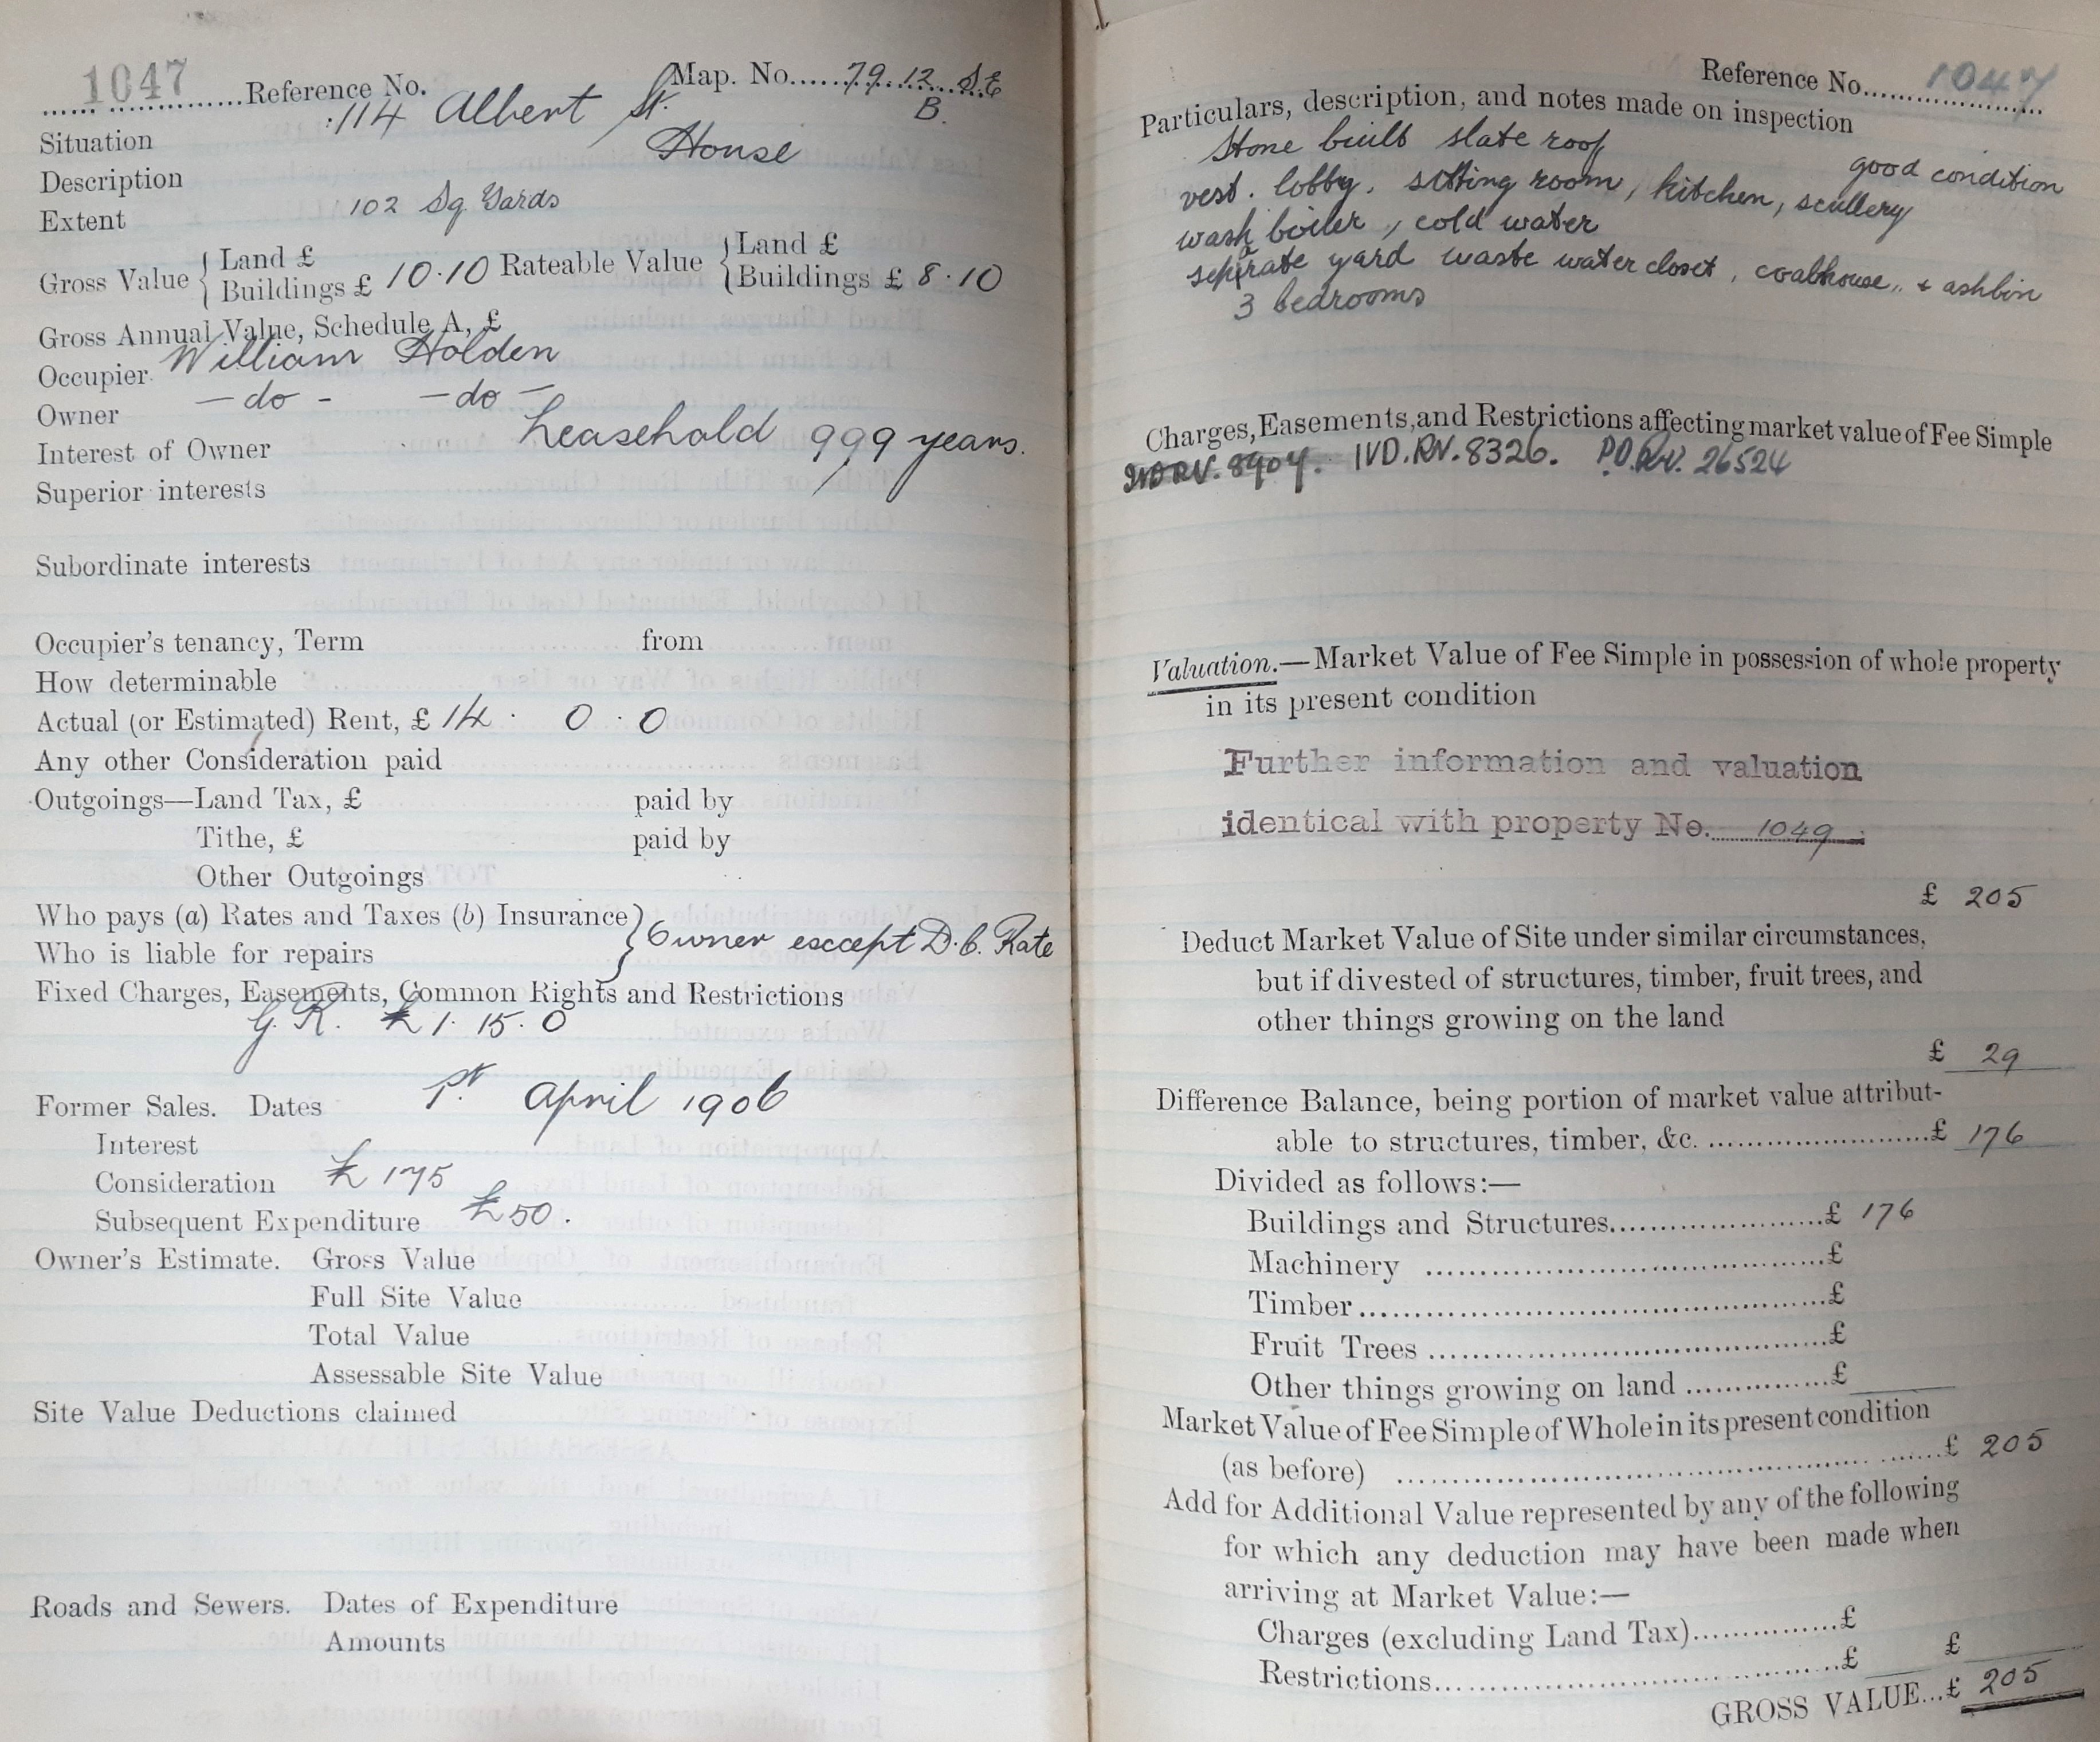 1047 Reference No. Map. No. 79.12. S.E
B.
Situation 114 Albert St.
Description House
Extent 102 Sq Yards
Gross Value { Land £
Buildings £ 10.10 Rateable Value { Land £
Buildings £ 8.10
Gross Annual Value, Schedule A, £
Occupier William Holden
Owner -do- -do-
Interest of Owner Leasehold 999 years.
Superior interests
Subordinate interests
Occupier's tenancy, Term from
How determinable
Actual (or Estimated) Rent, £ 14 . 0 . 0
Any other Consideration paid
Outgoings—Land Tax, £ paid by
Tithe, £ paid by
Other Outgoings
Who pays (a) Rates and Taxes (b) Insurance
Who is liable for repairs } Owner except D.C. Rate
Fixed Charges, Easements, Common Rights and Restrictions
G.R. £1. 15. 0
Former Sales. Dates 1st April 1906
Interest
Consideration £175
Subsequent Expenditure £50.
Owner's Estimate. Gross Value
Full Site Value
Total Value
Assessable Site Value
Site Value Deductions claimed
Roads and Sewers. Dates of Expenditure
Amounts
Reference No. 1047
Particulars, description, and notes made on inspection
Stone built slate roof good condition
vest. lobby, sitting room, kitchen, scullery
wash boiler, cold water
separate yard waste water closet, coalhouse, & ashbin
3 bedrooms
Charges, Easements, and Restrictions affecting market value of Fee Simple
IVD.RV. 8326. P.O.RV. 26524
Valuation.—Market Value of Fee Simple in possession of whole property
in its present condition
Further information and valuation
identical with property No. 1049
£ 205
Deduct Market Value of Site under similar circumstances,
but if divested of structures, timber, fruit trees, and
other things growing on the land
£ 29
Difference Balance, being portion of market value attribut-
able to structures, timber, &c. £ 176
Divided as follows:—
Buildings and Structures £ 176
Machinery £
Timber £
Fruit Trees £
Other things growing on land £
Market Value of Fee Simple of Whole in its present condition
(as before) £ 205
Add for Additional Value represented by any of the following
for which any deduction may have been made when
arriving at Market Value:—
Charges (excluding Land Tax) £
Restrictions £ £
GROSS VALUE...£ 205